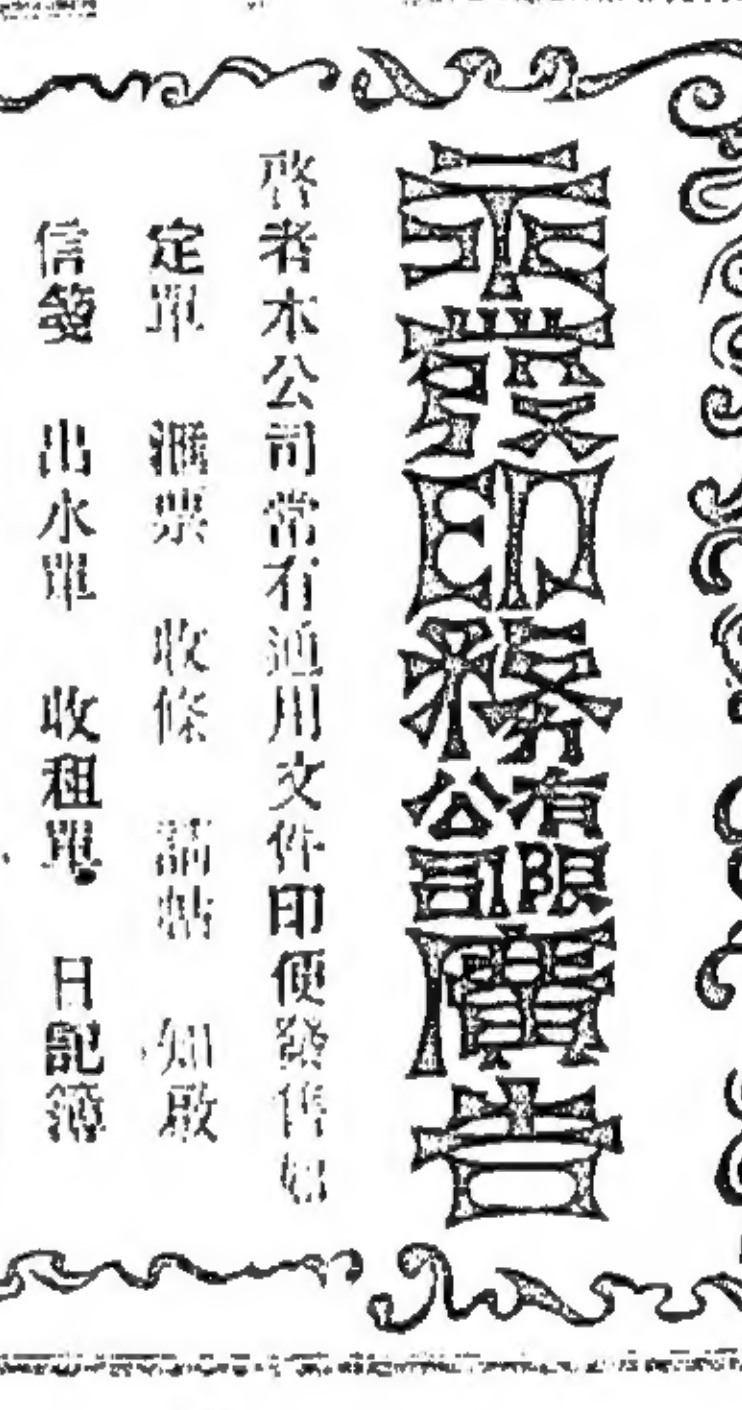 發印務有限公司廣告
啓者本公司常有通用文件印便發售如
定單 滙票 收條 請帖 知啟
信箋 出水單 收租單 日記簿